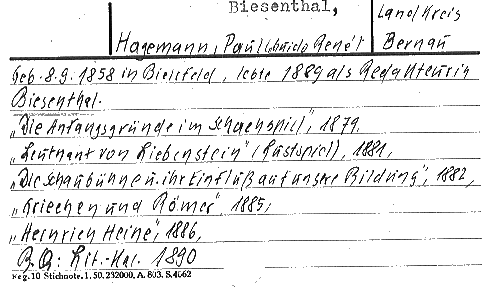 Biesenthal,
Landkreis
Hagemann, Paul
Bernau
geb. 8.9. 1858 in Bielefeld, lebte 1889 als Redakteur in
Biesenthal.
„Die Anfangsgründe im Schachspiel", 1879,
„Leutnant von Liebenstein" (Lustspiel), 1881,
„Die Schaubühne u. ihr Einfluß auf unsere Bildung", 1882,
„Griechen und Römer", 1885,
„Heinrich Heine", 1886,
Lit.-Kal. 1890
Reg. 10 Stichnote. 1. 50. 232000. A. 803. S. 4062